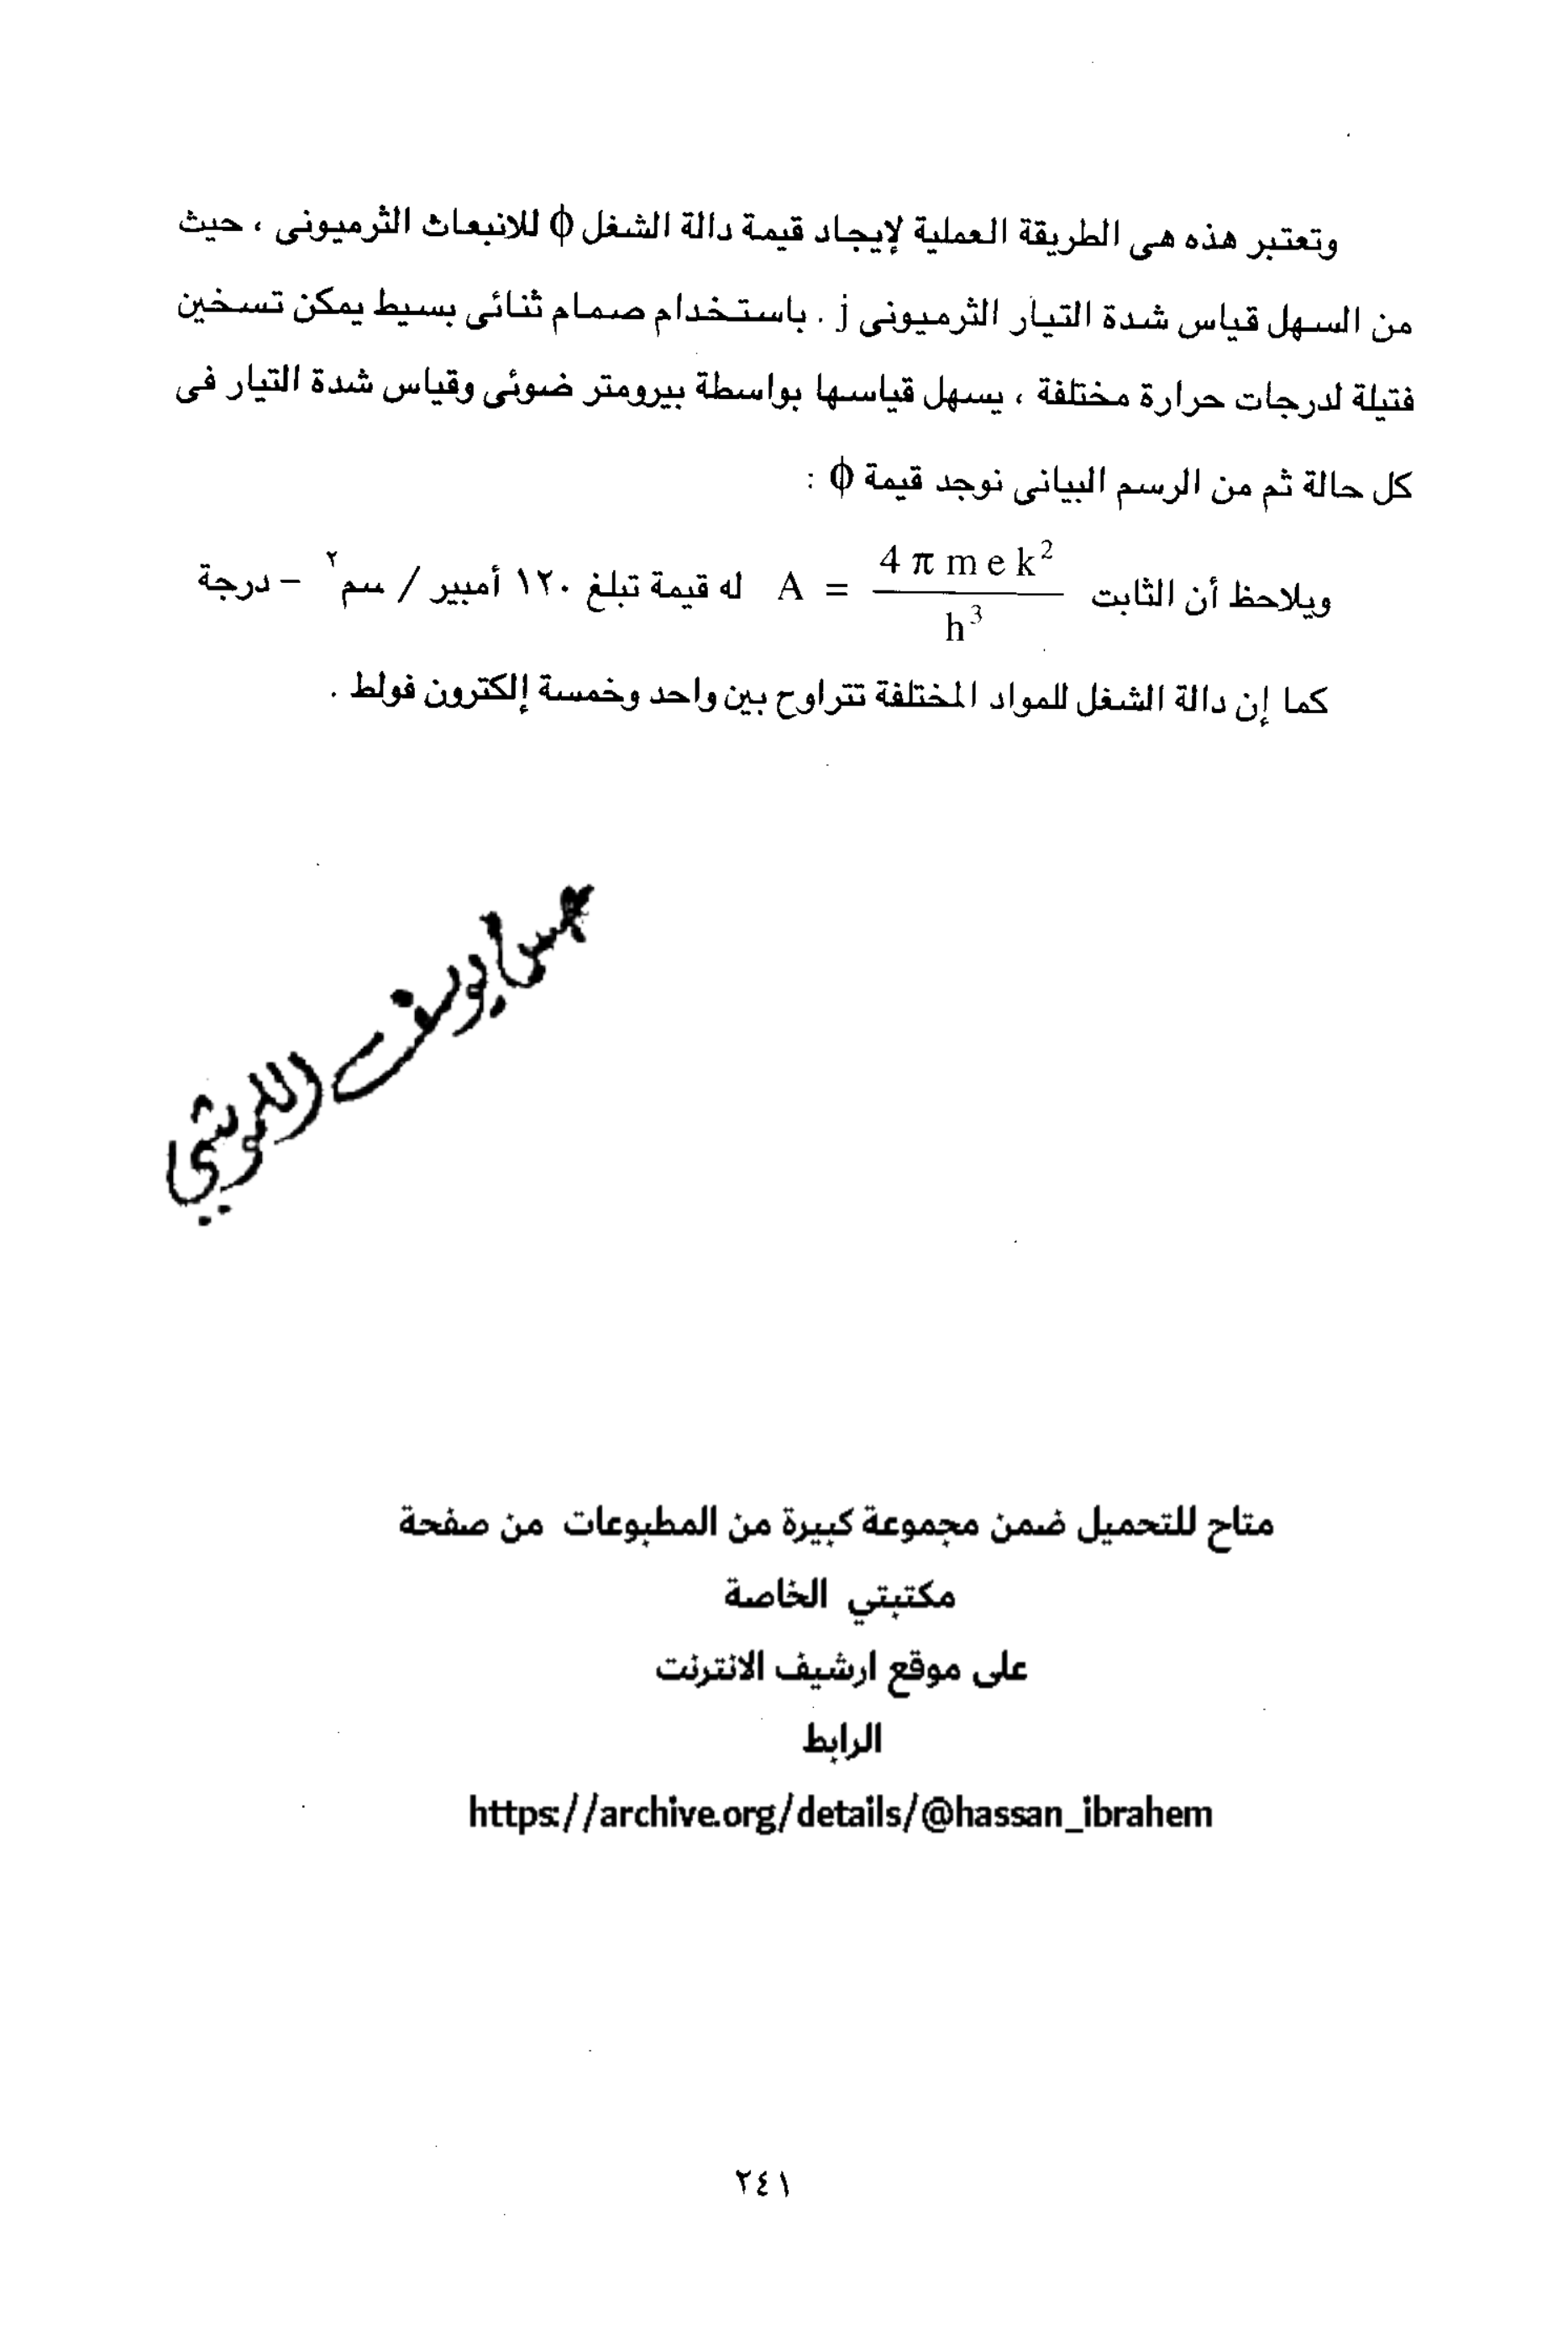 وتعتبر هذه هى الطريقة العملية لإيجاد قيمة دالة الشغل ϕ للانبعاث الثرميونى ، حيث
من السهل قياس شدة التيار الثرميونى j . باستخدام صمام ثنائى بسيط يمكن تسخين
فتيلة لدرجات حرارة مختلفة ، يسهل قياسها بواسطة بيرومتر ضوئى وقياس شدة التيار فى
كل حالة ثم من الرسم البيانى نوجد قيمة ϕ :
ويلاحظ أن الثابت A = 4 π m e k² / h³ له قيمة تبلغ ١٢٠ أمبير / سم٢ – درجة
كما إن دالة الشغل للمواد المختلفة تتراوح بين واحد وخمسة إلكترون فولط .
يوسف
متاح للتحميل ضمن مجموعة كبيرة من المطبوعات من صفحة
مكتبتي الخاصة
على موقع ارشيف الانترنت
الرابط
https://archive.org/details/@hassan_ibrahem
٢٤١